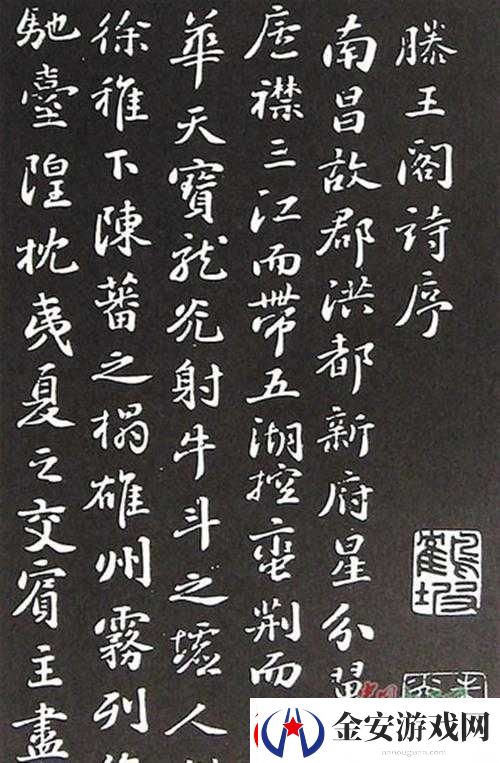 滕王閣詩序
南昌故郡洪都新府星分翼
廬襟三江而帶五湖控蠻荊而
華天寶龍光射牛斗之墟人
徐稚下陳蕃之榻雄州霧列
馳臺隍枕夷夏之交賓主盡
金安游戏网